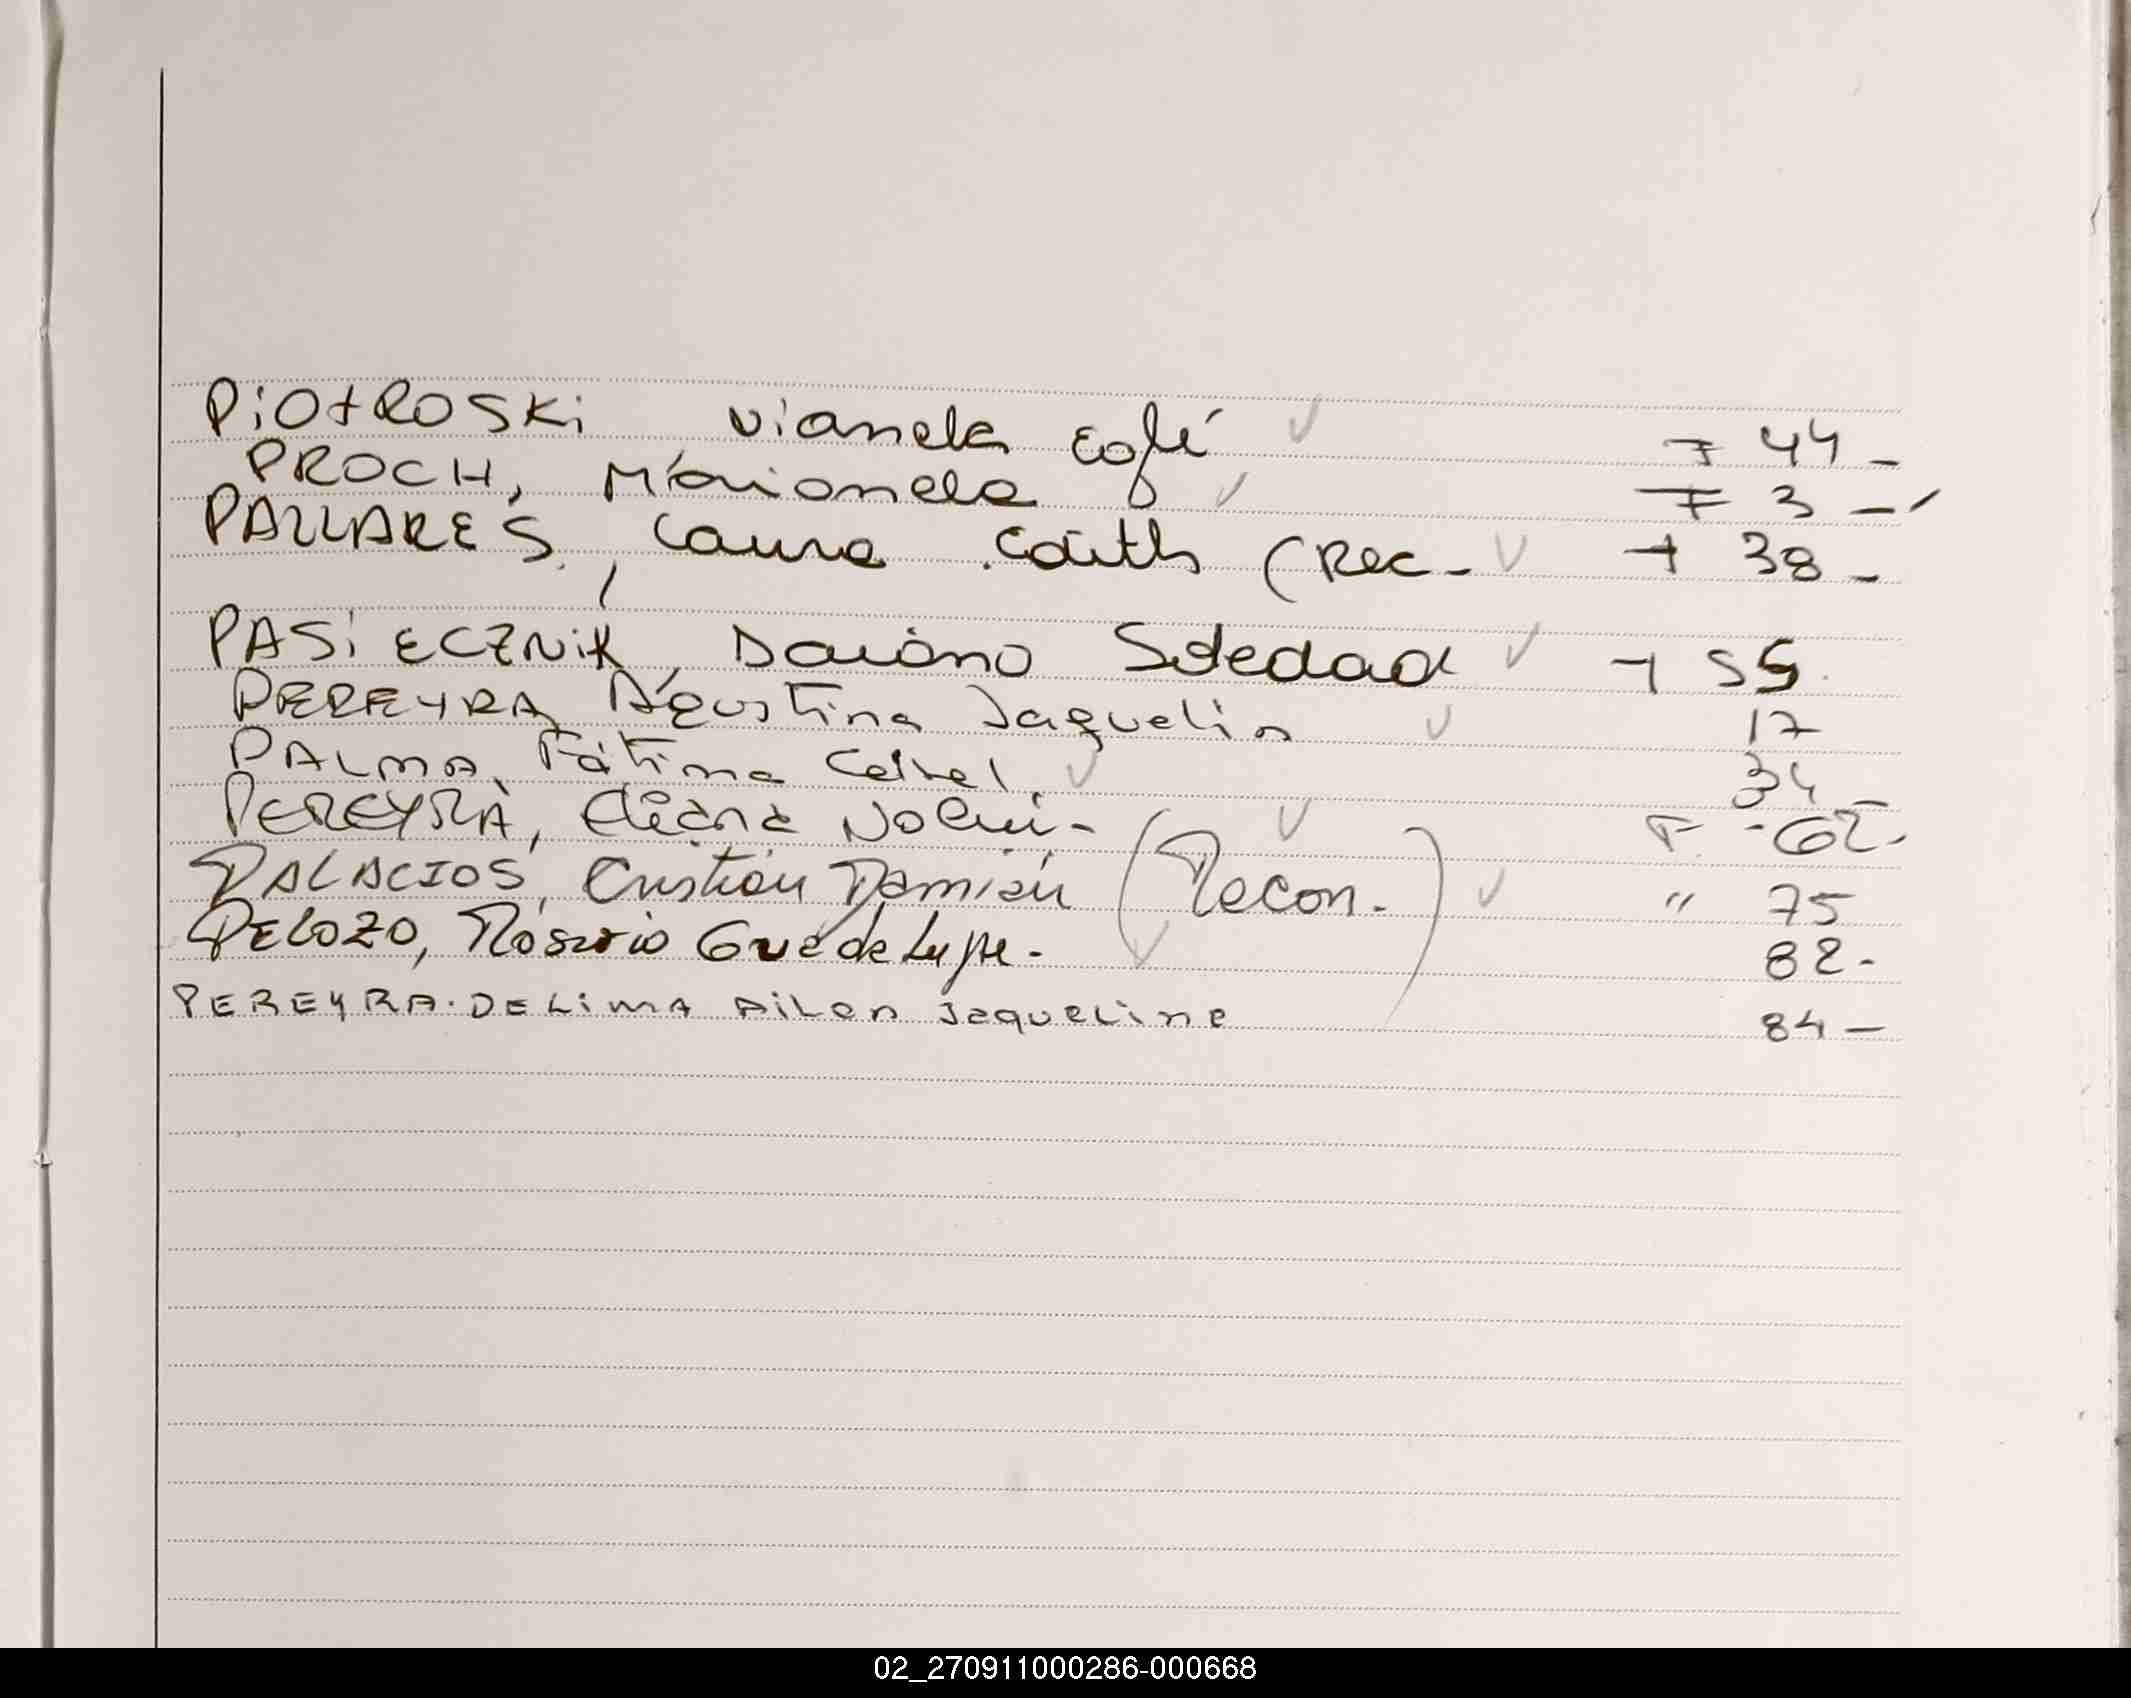 PiOtROSKi Vianela ✓ F 44 -
PROCH, Marianela ✓ F 3 -
PALLARES, Laura Edith (Rec - ✓ F 38 -
PASiECZNiK, Daiana Soledad ✓ F 55
PEREYRA, Agustina Jaquelin ✓ 17
PALMA, Fátima ✓ 34 -
PEREYRA, Eliana Noemi - ✓ F - 62 -
PALACIOS, Cristian Damian (Recon.) ✓ " 75
PELOZO, Rosario Guadalupe - ✓ 82 -
PEREYRA. DE LiMA AiLen Jaqueline 84 -
02_270911000286-000668